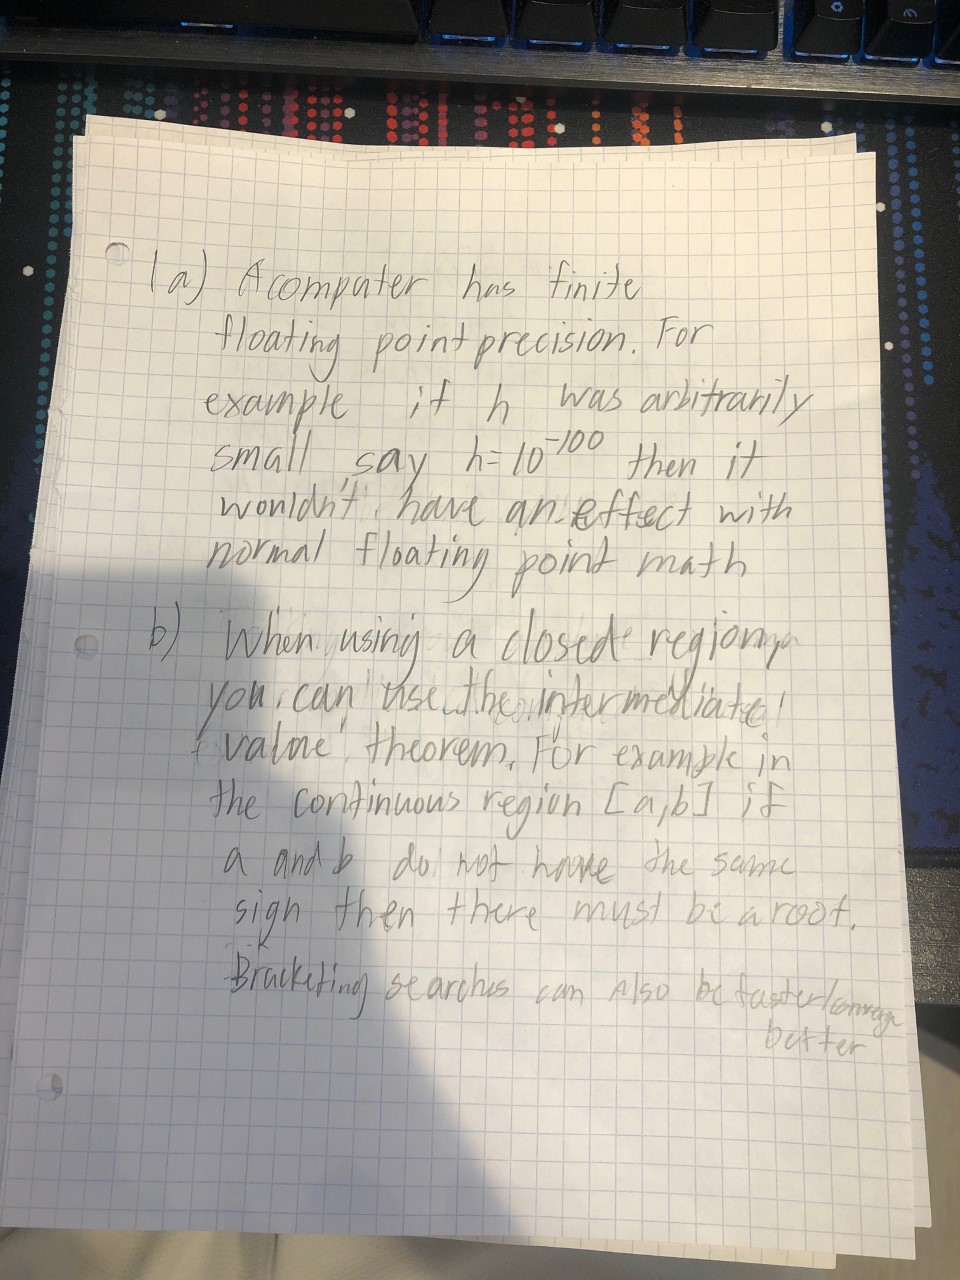 1a) A computer has finite
floating point precision. For
example if h was arbitrarily
small say h=10^-100 then it
wouldn't have an effect with
normal floating point math
b) When using a closed region
you can use the intermediate
value theorem. For example in
the continuous region [a,b] if
a and b do not have the same
sign then there must be a root.
Bracketing searches can also be faster/converge
better